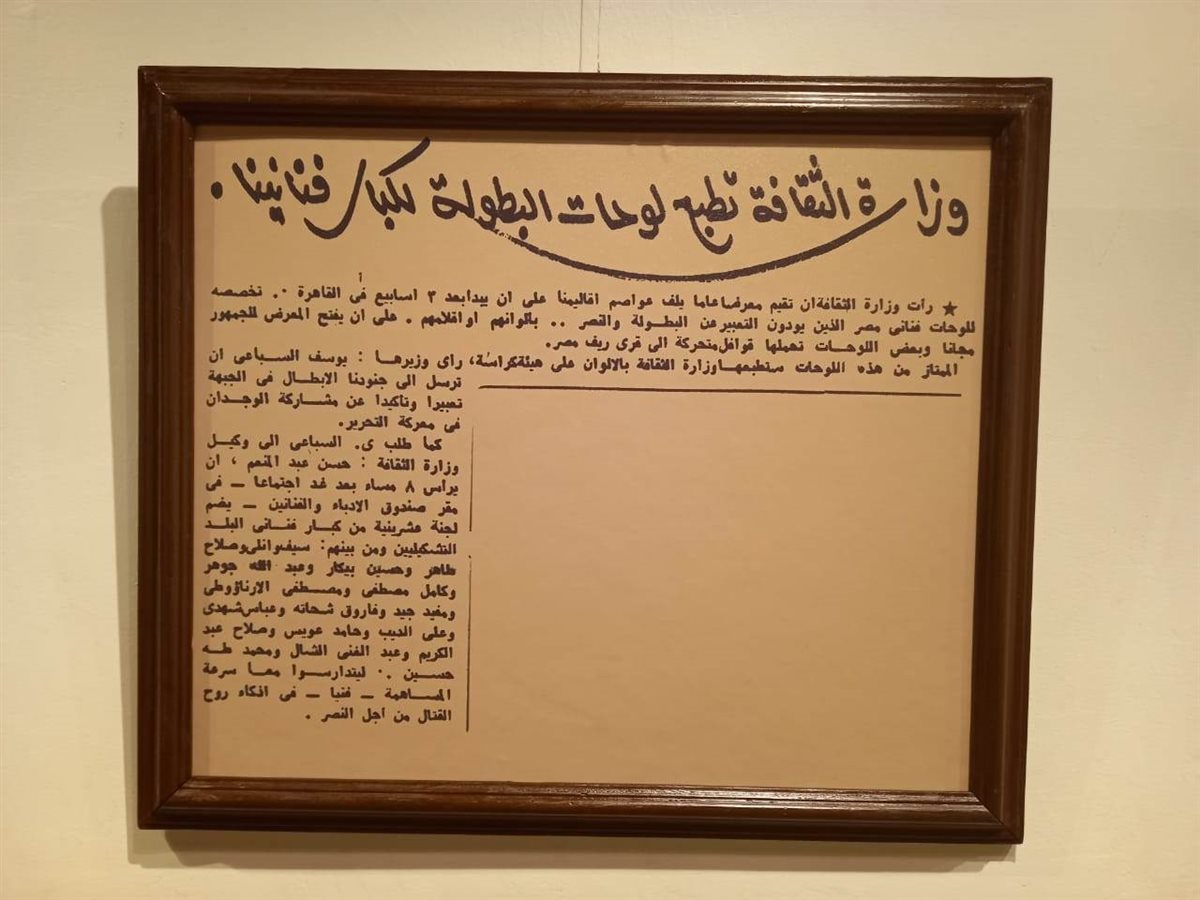 وزارة الثقافة تطبع لوحات البطولة لكبار فنانينا .
★ رأت وزارة الثقافة ان تقيم معرضا عاما يلف عواصم اقاليمنا على ان يبدا بعد ٣ اسابيع فى القاهرة .. تخصصه
للوحات فنانى مصر الذين يودون التعبير عن البطولة والنصر .. بالوانهم او اقلامهم . على ان يفتح المعرض للجمهور
مجانا وبعض اللوحات تحملها قوافل متحركة الى قرى ريف مصر.
الممتاز من هذه اللوحات ستطبعها وزارة الثقافة بالالوان على هيئة كراسة، راى وزيرها : يوسف السباعى ان
ترسل الى جنودنا الابطال فى الجبهة
تعبيرا وتأكيدا عن مشاركة الوجدان
فى معركة التحرير.
كما طلب ى. السباعى الى وكيل
وزارة الثقافة : حسن عبد المنعم ، ان
يرأس ٨ مساء بعد غد اجتماعا ــ فى
مقر صندوق الادباء والفنانين ــ يضم
لجنة عشرينية من كبار فنانى البلد
التشكيليين ومن بينهم: سيف وانلى وصلاح
طاهر وحسين بيكار وعبد الله جوهر
وكامل مصطفى ومصطفى الارناؤوطى
ومفيد جيد وفاروق شحاته وعباس شهدى
وعلى الديب وحامد عويس وصلاح عبد
الكريم وعبد الغنى الشال ومحمد طه
حسين .. ليتدارسوا معا سرعة
المساهمة ــ فنيا ــ فى اذكاء روح
القتال من أجل النصر .